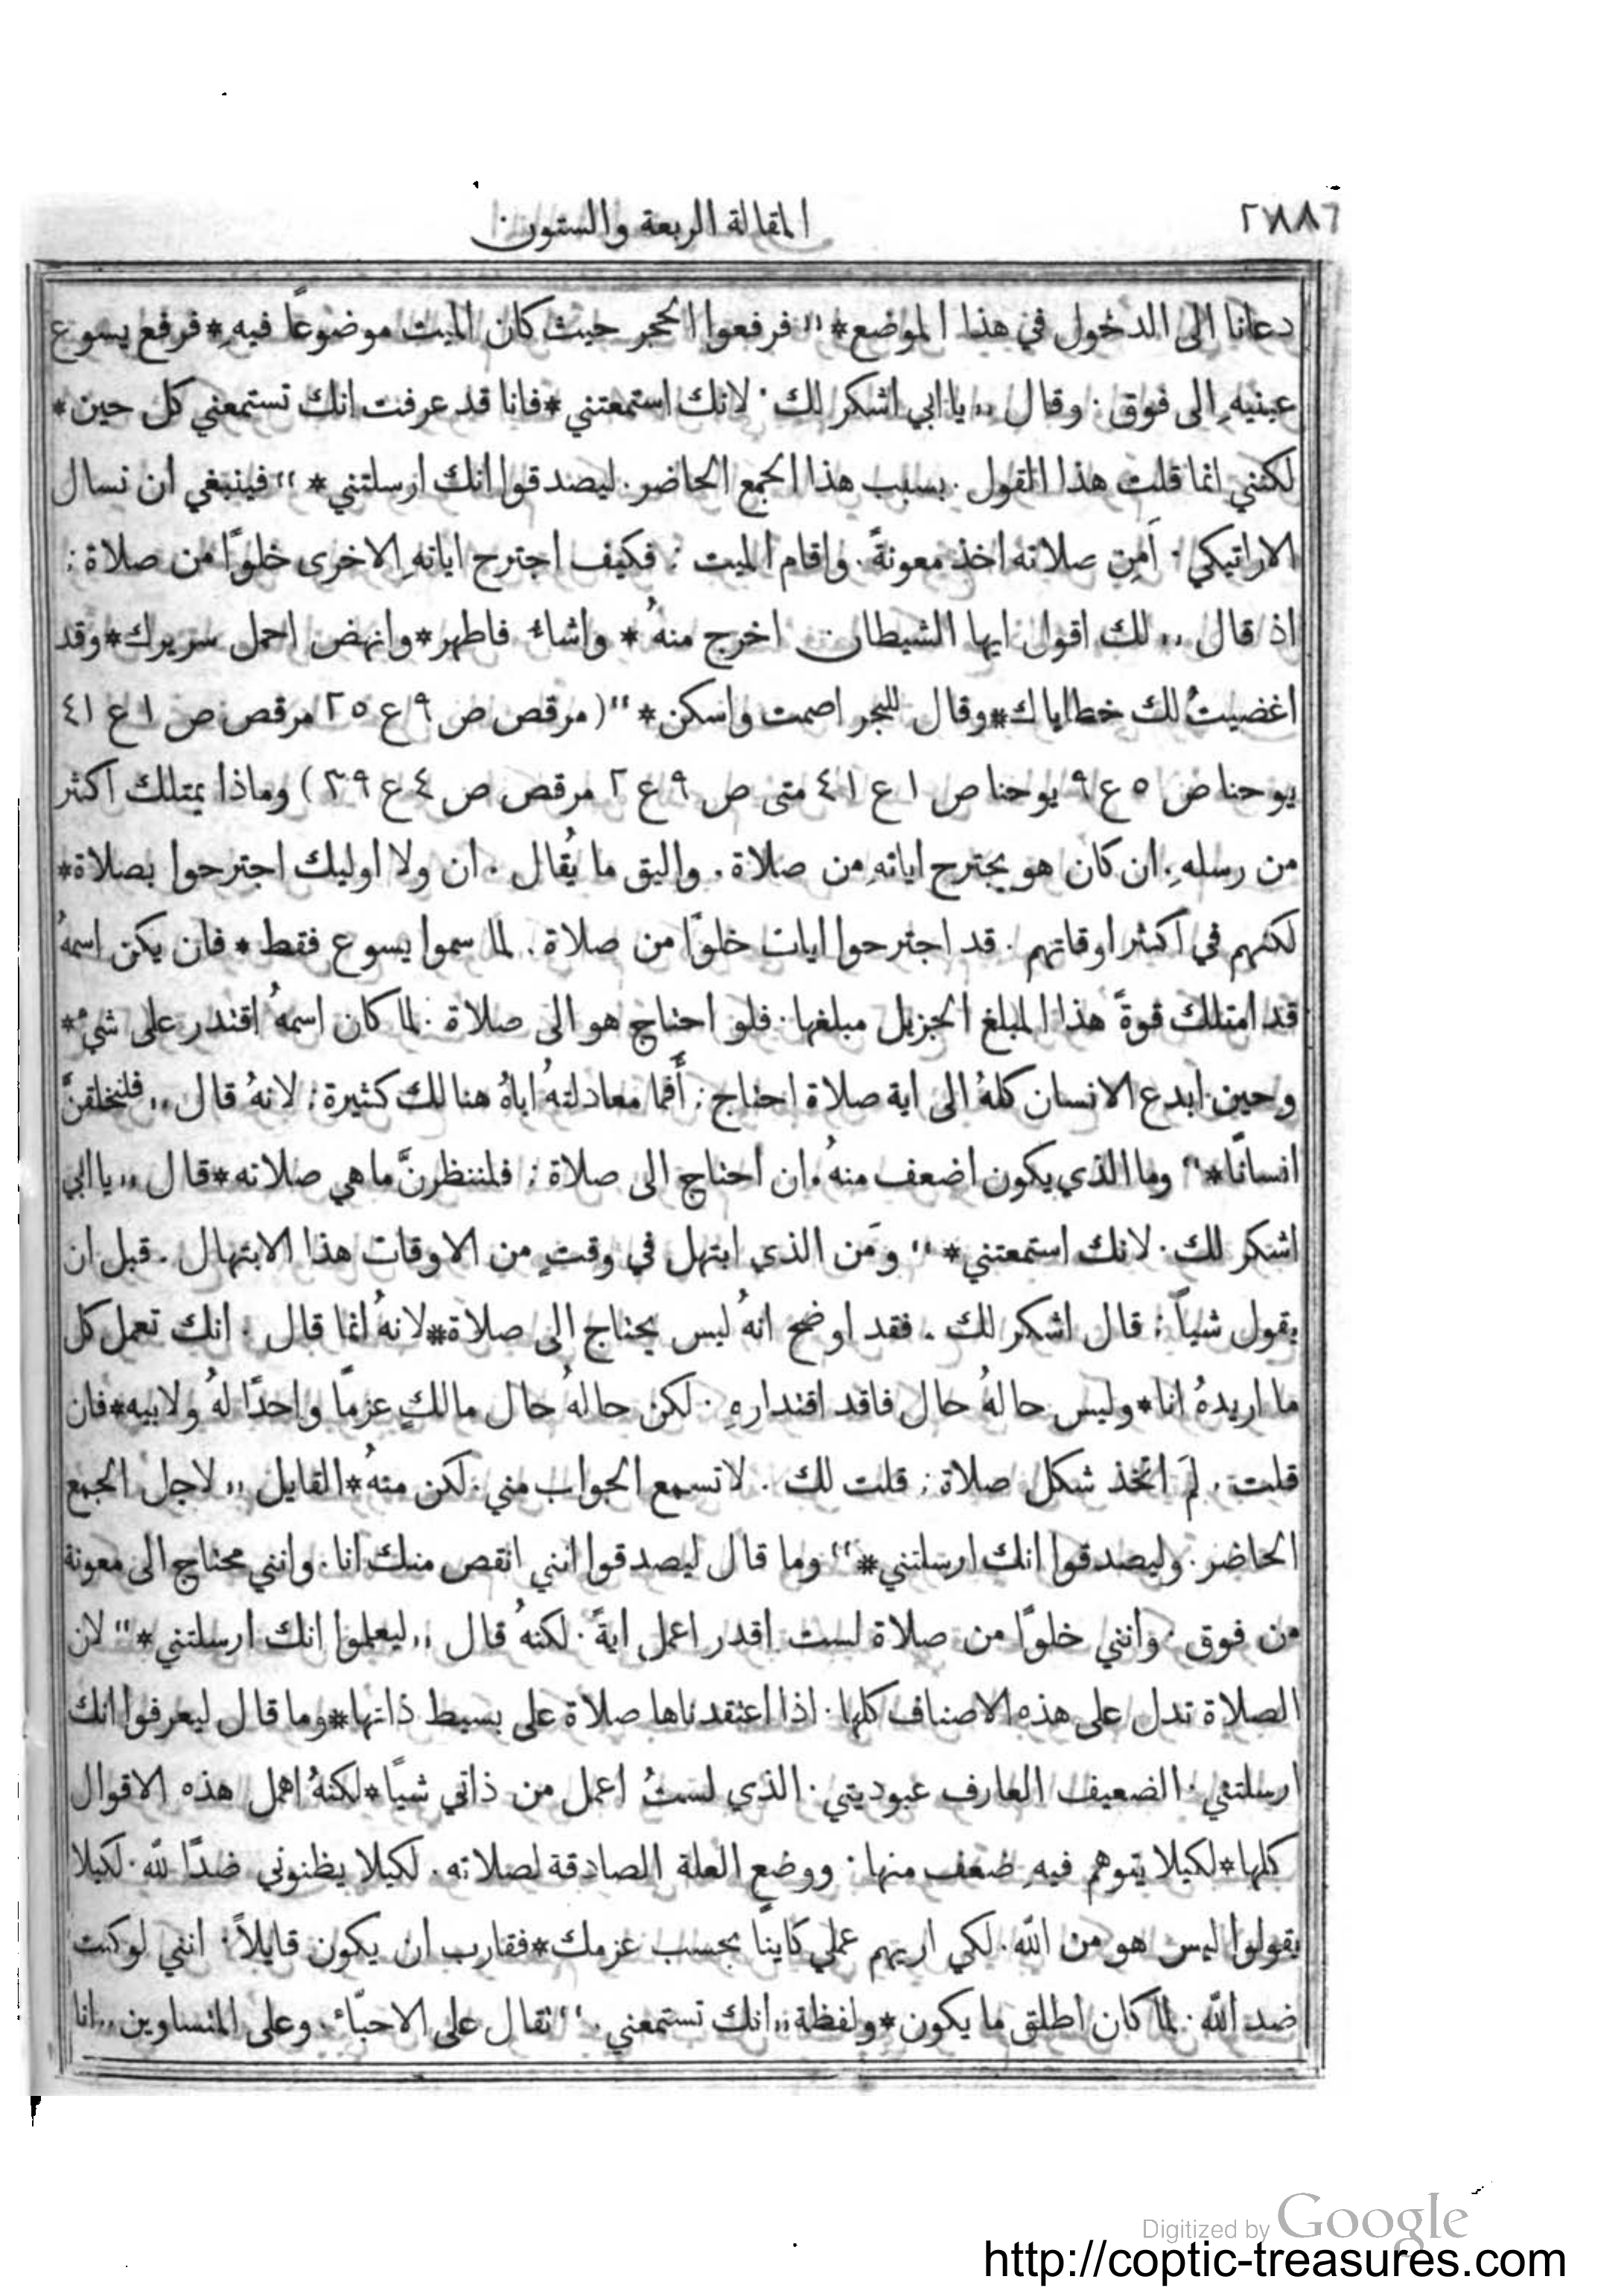 المقالة الربعة والستون
دعانا الى الدخول في هذا الموضع* ،، فرفعوا الحجر حيث كان الميت موضوعًا فيهِ*فرفع يسوع
عينيهِ الى فوق · وقال ,, يا ابي اشكر لك · لانك استمعتني*فانا قد عرفت انك تستمعني كل حين*
لكنني انما قلت هذا القول · بسبب هذا الجمع الحاضر · ليصدقوا انك ارسلتني* ،، فينبغي ان نسال
الاراتيكي · اَمِن صلاته اخذ معونةً · واقام الميت : فكيف اجترح اياتهِ الاخرى خلوًا من صلاة :
اذ قال ,, لك اقول ايها الشيطان اخرج منهُ * واشاء فاطهر*وانهض احمل سريرك*وقد
اغضيتُ لك خطاياك*وقال للبحر اصمت واسكن* ،، (مرقص ص ٩ ع ٢٥ مرقص ص ١ ع ٤١
يوحنا ص ٥ ع ٩ يوحنا ص ١ ع ٤١ متى ص ٩ ع ٢ مرقص ص ٤ ع ٣٩ ) وماذا يمتلك اكثر
من رسلهِ · ان كان هو يجترح اياتهِ من صلاة . واليق ما يُقال . ان ولا اوليك اجترحوا بصلاة*
لكنهم في اكثر اوقاتهم · قد اجترحوا ايات خلوًا من صلاة . لما سموا يسوع فقط * فان يكن اسمهُ
قد امتلك قوةً هذا المبلغ الجزيل مبلغها · فلو احتاج هو الى صلاة · لما كان اسمهُ اقتدر على شيء*
وحين ابدع الانسان كلهُ الى اية صلاة احتاج : أَفما معادلتهُ اباهُ هنالك كثيرة : لانهُ قال ,, فلنخلقنَّ
انسانًا* ،، وما الذي يكون اضعف منهُ · ان احتاج الى صلاة : فلننظرنَّ ما هي صلاته*قال ,, يا ابي
اشكر لك · لانك استمعتني* ،، ومَن الذي ابتهل في وقتٍ من الاوقات هذا الابتهال . قبل ان
يقول شياً : قال اشكر لك . فقد اوضح انهُ ليس يحتاج الى صلاة*لانهُ انما قال . انك تعمل كل
ما اريدهُ انا*وليس حالهُ حال فاقد اقتدارهِ · لكن حالهُ حال مالكٍ عزمًا واحدًا لهُ ولابيه*فان
قلت . لمَ اتخذ شكل صلاة : قلت لك . لا تسمع الجواب مني · لكن منهُ*القايل ,, لاجل الجمع
الحاضر · وليصدقوا انك ارسلتني* ،، وما قال ليصدقوا انني انقص منك انا · وانني محتاج الى معونة
من فوق · وانني خلوًا من صلاة لست اقدر اعمل ايةً · لكنهُ قال ,, ليعلموا انك ارسلتني* ،، لان
الصلاة تدل على هذه الاصناف كلها · اذا اعتقدناها صلاة على بسيط ذاتها*وما قال ليعرفوا انك
ارسلتني · الضعيف العارف عبوديتي · الذي لستُ اعمل من ذاتي شيًا*لكنهُ اهمل هذه الاقوال
كلها*لكيلا يتوهم فيهِ ضعف منها · ووضع العلة الصادقة لصلاته . لكيلا يظنوني ضدًا لله · لكيلا
يقولوا ليس هو من الله · لكي اريهم عملي كاينًا بحسب عزمك*فقارب ان يكون قايلاً · انني لو كنت
ضد الله · لما كان اطلق ما يكون*ولفظة ,, انك تستمعني · ،، تقال على الاحبّاء · وعلى المتساوين ,, انا
Digitized by Google
http://coptic-treasures.com